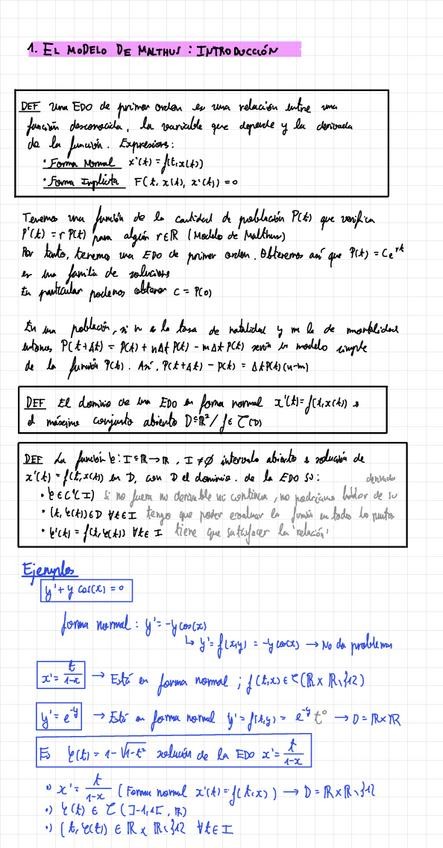 1. EL MODELO DE MALTHUS : INTRODUCCIÓN
DEF Una EDO de primer orden es una relación entre una
función desconocida, la variable que depende y la derivada
de la función. Expresiones:
· Forma Normal x'(t) = f(t, x(t))
· Forma Implícita F(t, x(t), x'(t)) = 0
Tenemos una función de la cantidad de población P(t) que verifica
P'(t) = r P(t) para algún r∈ℝ (Modelo de Malthus)
Por tanto, tenemos una EDO de primer orden. Obtenemos así que P(t) = Ce^rt
es una familia de soluciones
En particular podemos obtener C = P(0)
En una población, si n es la tasa de natalidad y m la de mortalidad
entonces P(t+Δt) = P(t) + nΔt P(t) - mΔt P(t) sería un modelo simple
de la función P(t). Así, P(t+Δt) - P(t) = Δt P(t)(n-m)
DEF El dominio de una EDO en forma normal x'(t) = f(t, x(t)) es
el máximo conjunto abierto D⊆ℝ² / f∈ C(D)
DEF La función φ: I⊆ℝ→ℝ, I≠∅ intervalo abierto es solución de
x'(t) = f(t, x(t)) en D, con D el dominio de la EDO si:
· φ∈C¹(I) Si no fuera no derivable no continua, no podríamos hablar de su derivada
· (t, φ(t))∈D ∀t∈I tengo que poder evaluar la función en todos los puntos
· φ'(t) = f(t, φ(t)) ∀t∈I tiene que satisfacer la "relación"
Ejemplos
y' + y cos(x) = 0
forma normal: y' = -y cos(x)
↳ y' = f(x,y) = -y cos(x) → No da problemas
x' = t/(1-x) → Está en forma normal ; f(t,x) ∈ C(ℝ x ℝ\{1})
y' = e^-y → Está en forma normal y' = f(t,y) = e^-y t⁰ → D = ℝxℝ
Es φ(t) = 1 - √(1-t²) solución de la EDO x' = t/(1-x)
·) x' = t/(1-x) (Forma normal x'(t) = f(t,x)) → D = ℝ x ℝ\{1}
·) φ(t) ∈ C(]-1,1[, ℝ)
·) (t, φ(t)) ∈ ℝ x ℝ\{1} ∀t∈I